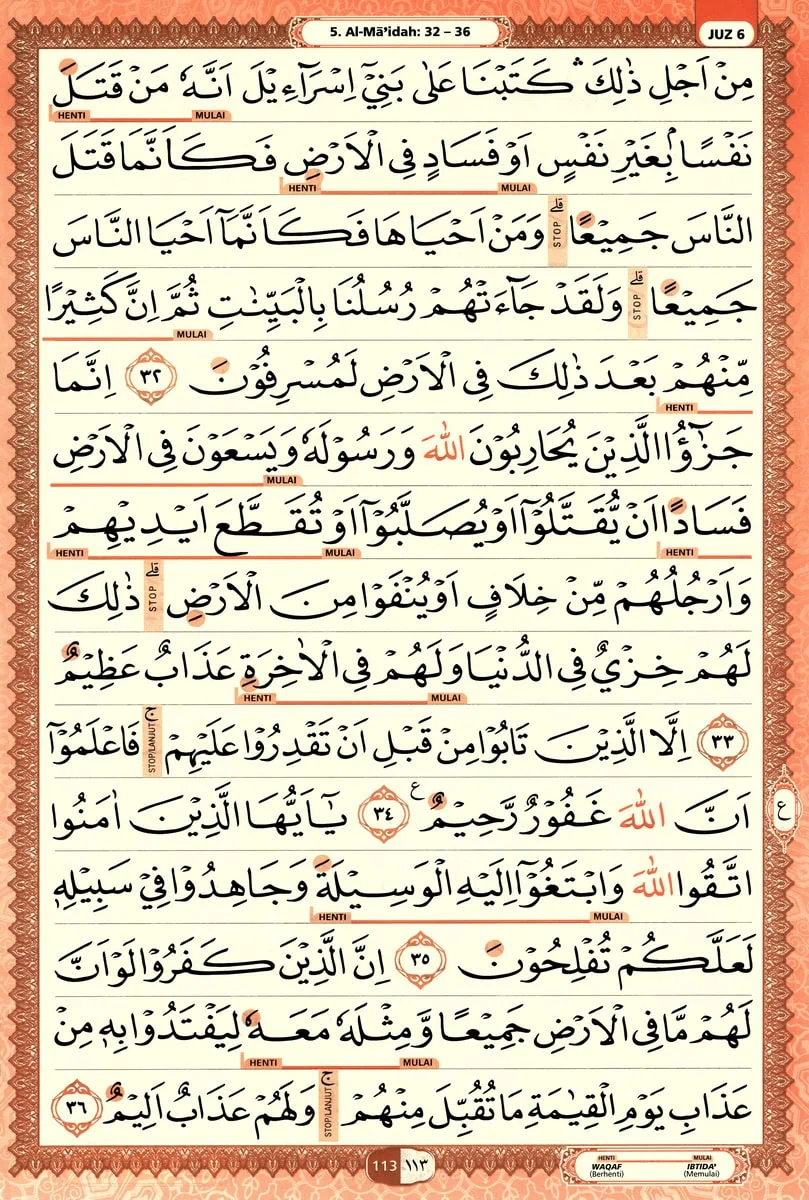 5. Al-Mā’idah: 32 – 36
JUZ 6
مِنْ اَجْلِ ذٰلِكَ ۛ كَتَبْنَا عَلٰى بَنِيْٓ اِسْرَاۤءِيْلَ اَنَّهٗ مَنْ قَتَلَ
HENTI MULAI
نَفْسًاۢ بِغَيْرِ نَفْسٍ اَوْ فَسَادٍ فِى الْاَرْضِ فَكَاَنَّمَا قَتَلَ
HENTI MULAI
النَّاسَ جَمِيْعًا ۗ STOP وَمَنْ اَحْيَاهَا فَكَاَنَّمَآ اَحْيَا النَّاسَ
جَمِيْعًا ۗ STOP وَلَقَدْ جَاۤءَتْهُمْ رُسُلُنَا بِالْبَيِّنٰتِ ثُمَّ اِنَّ كَثِيْرًا
MULAI
مِّنْهُمْ بَعْدَ ذٰلِكَ فِى الْاَرْضِ لَمُسْرِفُوْنَ ٣٢ اِنَّمَا
HENTI
جَزٰۤؤُا الَّذِيْنَ يُحَارِبُوْنَ اللّٰهَ وَرَسُوْلَهٗ وَيَسْعَوْنَ فِى الْاَرْضِ
MULAI
فَسَادًا اَنْ يُّقَتَّلُوْٓا اَوْ يُصَلَّبُوْٓا اَوْ تُقَطَّعَ اَيْدِيْهِمْ
HENTI MULAI HENTI
وَاَرْجُلُهُمْ مِّنْ خِلَافٍ اَوْ يُنْفَوْا مِنَ الْاَرْضِ ۗ STOP ذٰلِكَ
لَهُمْ خِزْيٌ فِى الدُّنْيَا وَلَهُمْ فِى الْاٰخِرَةِ عَذَابٌ عَظِيْمٌ
HENTI MULAI
٣٣ اِلَّا الَّذِيْنَ تَابُوْا مِنْ قَبْلِ اَنْ تَقْدِرُوْا عَلَيْهِمْ ۚ STOP/LANJUT فَاعْلَمُوْٓا
اَنَّ اللّٰهَ غَفُوْرٌ رَّحِيْمٌ ࣖ ٣٤ يٰٓاَيُّهَا الَّذِيْنَ اٰمَنُوا
ع
اتَّقُوا اللّٰهَ وَابْتَغُوْٓا اِلَيْهِ الْوَسِيْلَةَ وَجَاهِدُوْا فِيْ سَبِيْلِهٖ
HENTI MULAI
لَعَلَّكُمْ تُفْلِحُوْنَ ٣٥ اِنَّ الَّذِيْنَ كَفَرُوْا لَوْ اَنَّ
لَهُمْ مَّا فِى الْاَرْضِ جَمِيْعًا وَّمِثْلَهٗ مَعَهٗ لِيَفْتَدُوْا بِهٖ مِنْ
HENTI MULAI
عَذَابِ يَوْمِ الْقِيٰمَةِ مَا تُقُبِّلَ مِنْهُمْ ۚ STOP/LANJUT وَلَهُمْ عَذَابٌ اَلِيْمٌ ٣٦
113 ١١٣
HENTI MULAI
WAQAF IBTIDA'
(Berhenti) (Memulai)